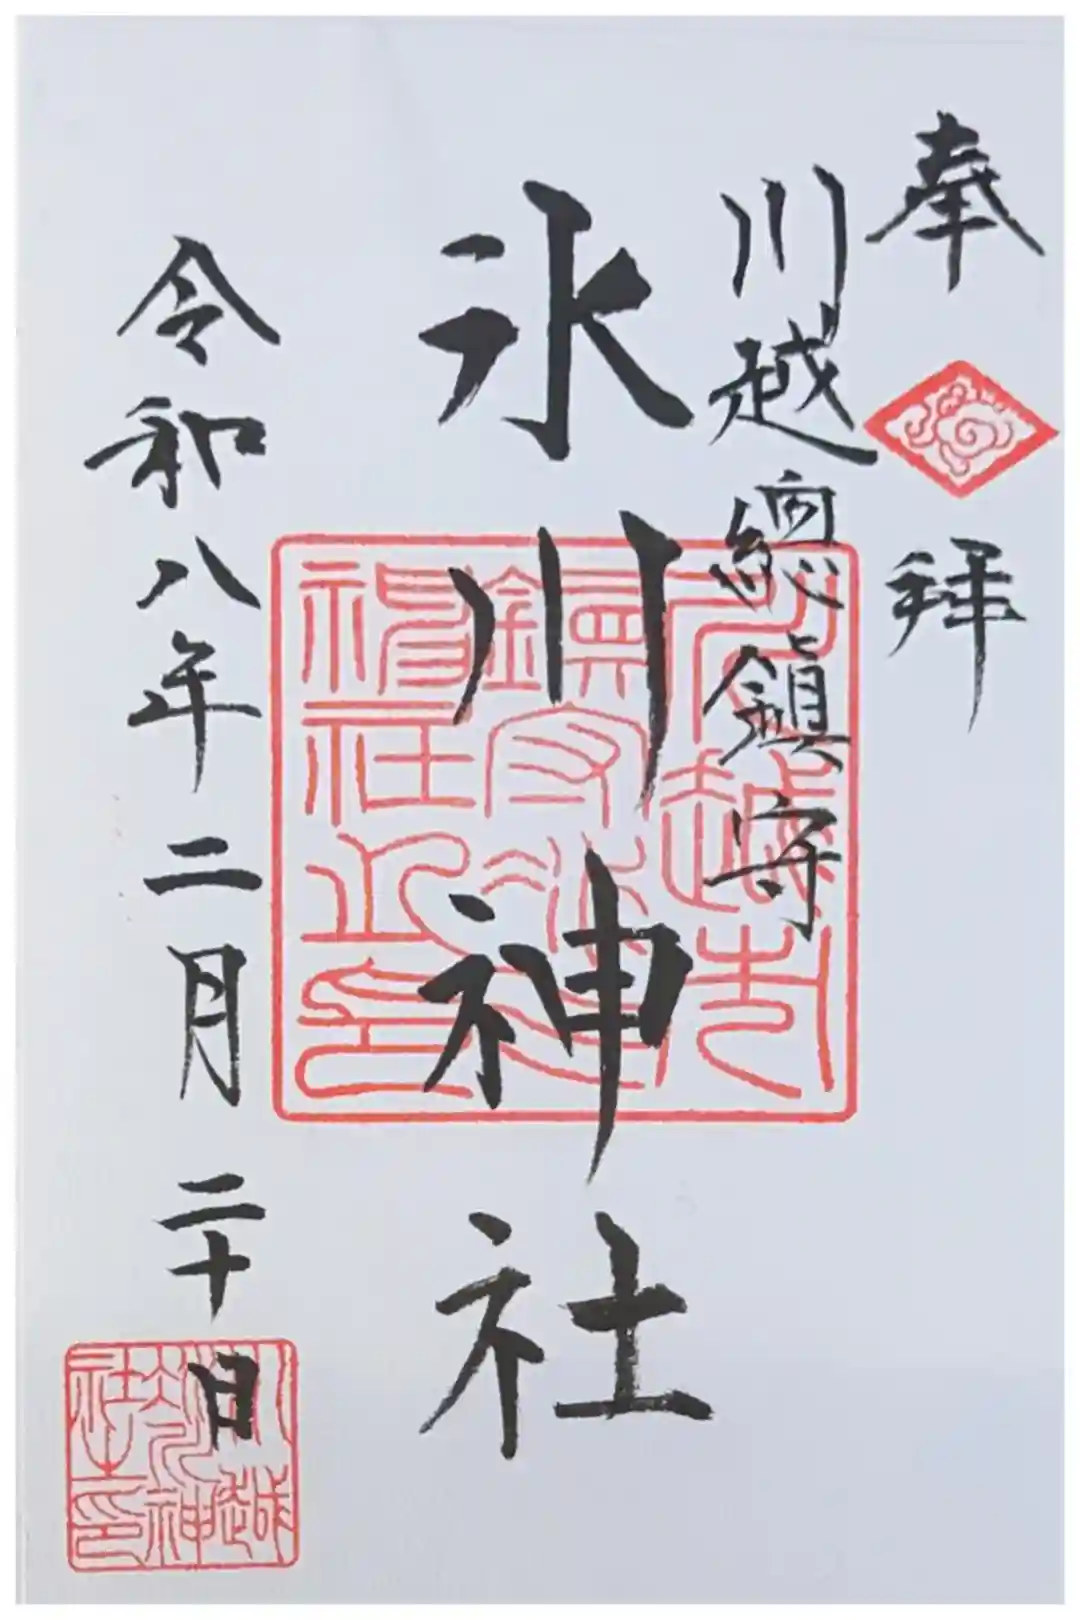 奉拝
川越總鎮守
氷川神社
令和八年二月二十日
川越氷川神社之印